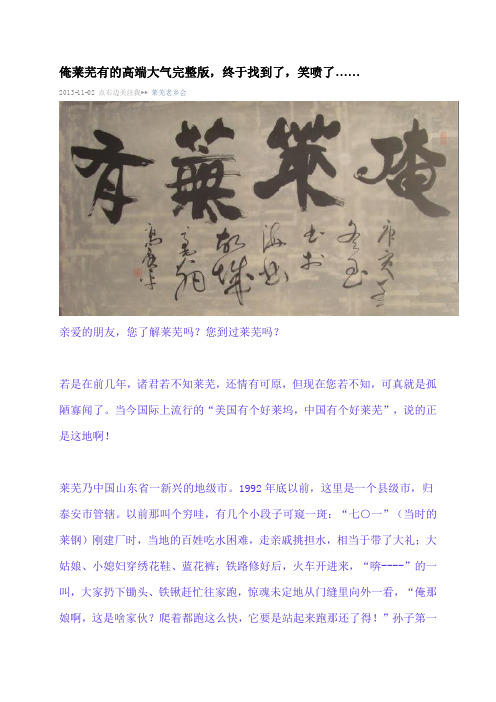 俺莱芜有的高端大气完整版，终于找到了，笑喷了……
2013-11-02 点右边关注我▸▸ 莱芜老乡会
俺萊蕪有
亲爱的朋友，您了解莱芜吗？您到过莱芜吗？
若是在前几年，诸君若不知莱芜，还情有可原，但现在您若不知，可真就是孤
陋寡闻了。当今国际上流行的“美国有个好莱坞，中国有个好莱芜”，说的正
是这地啊！
莱芜乃中国山东省一新兴的地级市。1992年底以前，这里是一个县级市，归
泰安市管辖。以前那叫个穷哇，有几个小段子可窥一斑：“七〇一”（当时的
莱钢）刚建厂时，当地的百姓吃水困难，走亲戚挑担水，相当于带了大礼；大
姑娘、小媳妇穿绣花鞋、蓝花裤；铁路修好后，火车开进来，“唪----”的一
叫，大家扔下锄头、铁锹赶忙往家跑，惊魂未定地从门缝里向外一看，“俺那
娘啊，这是啥家伙？爬着都跑这么快，它要是站起来跑那还了得！”孙子第一